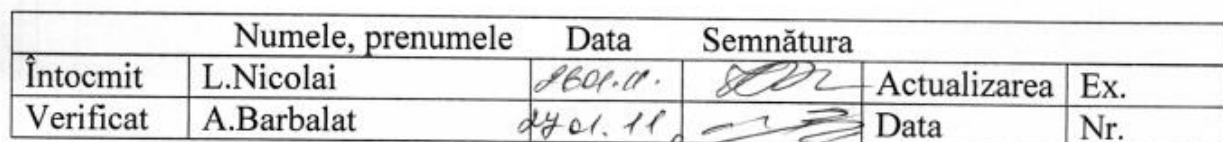 Numele, prenumele Data Semnătura
Întocmit L.Nicolai 2601.11. Actualizarea Ex.
Verificat A.Barbalat 27 01. 11 Data Nr.